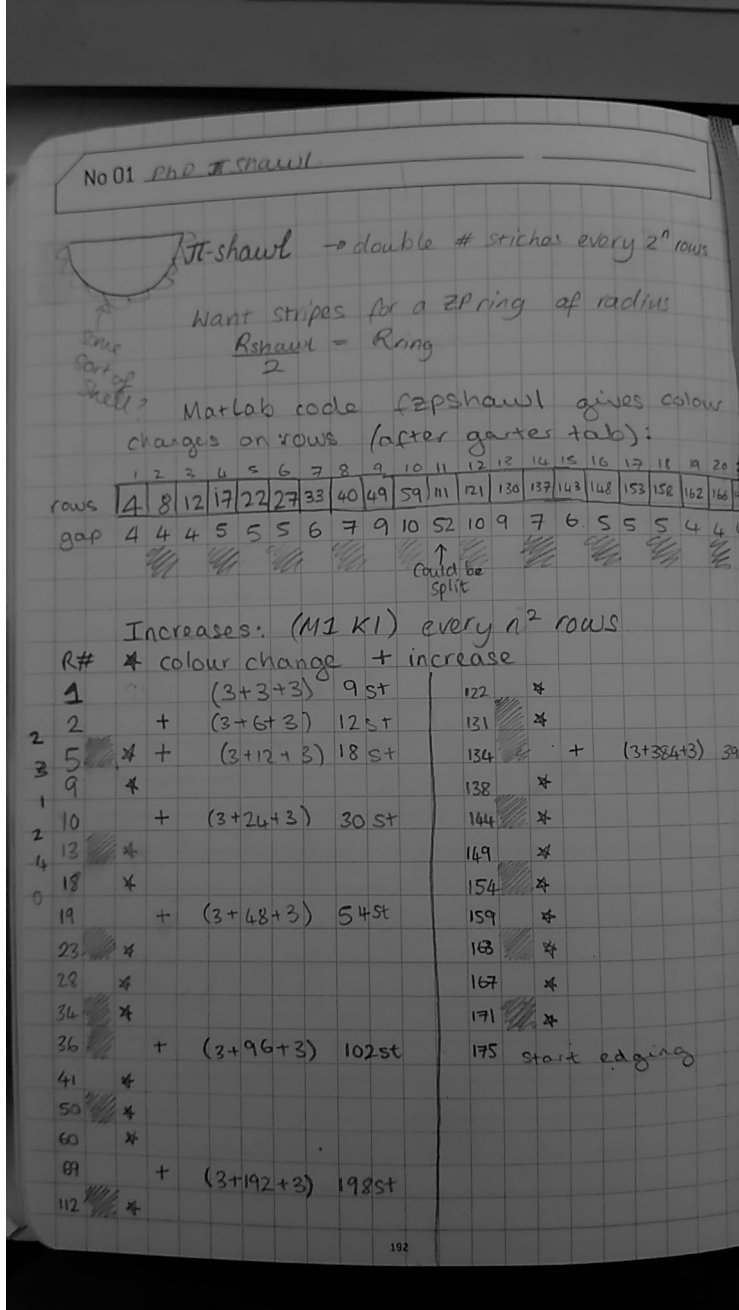 No 01 PhD π shawl
π-shawl → double # stiches every 2ⁿ rows
Want stripes for a ZP ring of radius
Rshawl = Rring
2
some
sort of
shell?
Matlab code fzpshawl gives colour
changes on rows (after garter tab):
1 2 3 4 5 6 7 8 9 10 11 12 13 14 15 16 17 18 19 20
rows 4 8 12 17 22 27 33 40 49 59 111 121 130 137 143 148 153 158 162 166
gap 4 4 4 5 5 5 6 7 9 10 52 10 9 7 6 5 5 5 4 4
↑
Could be
split
Increases: (M1 K1) every n² rows
R# * colour change + increase
1 (3+3+3) 9st
2 + (3+6+3) 12st
2
5 * + (3+12+3) 18st
3
9 *
1
10 + (3+24+3) 30st
2
13 *
4
18 *
0
19 + (3+48+3) 54st
23 *
28 *
34 *
36 + (3+96+3) 102st
41 *
50 *
60 *
69 + (3+192+3) 198st
112 *
122 *
131 *
134 + (3+384+3) 39
138 *
144 *
149 *
154 *
159 *
163 *
167 *
171 *
175 start edging
192